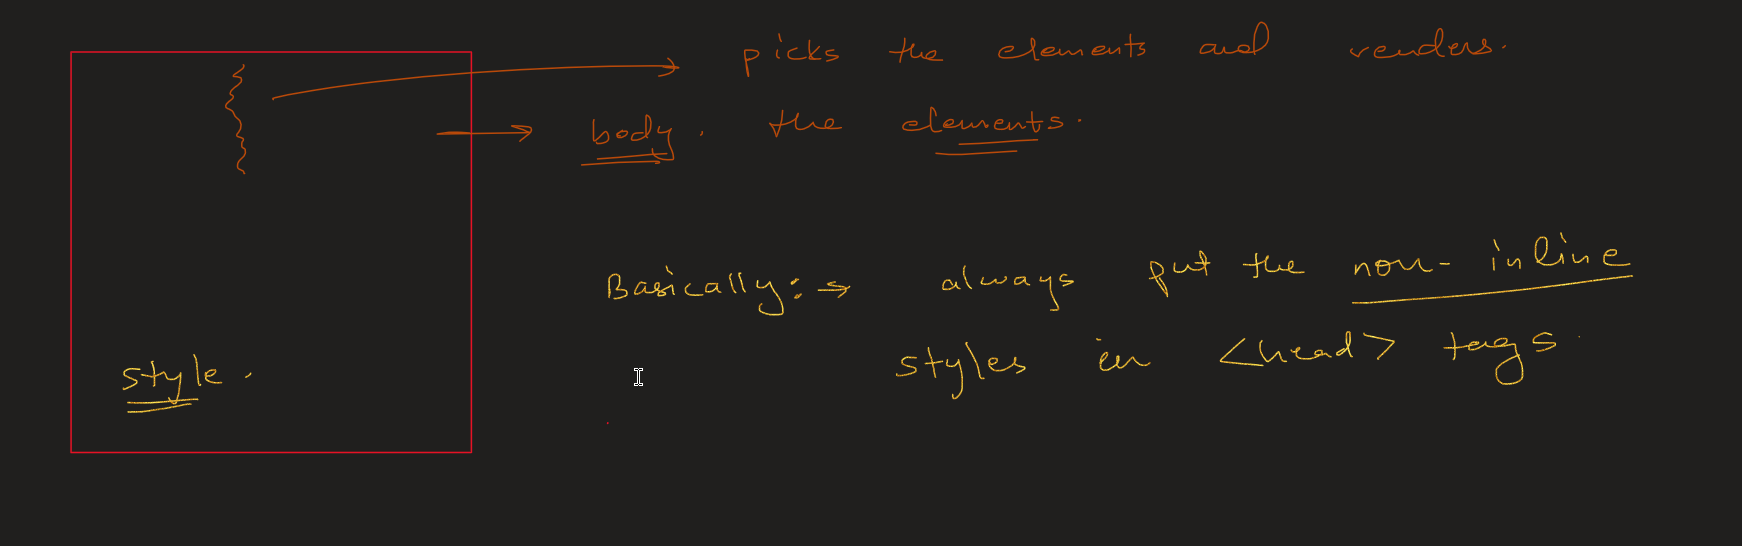 picks the elements and renders.
body. the elements.
Basically:→ always put the non-inline
styles in <head> tags.
style.